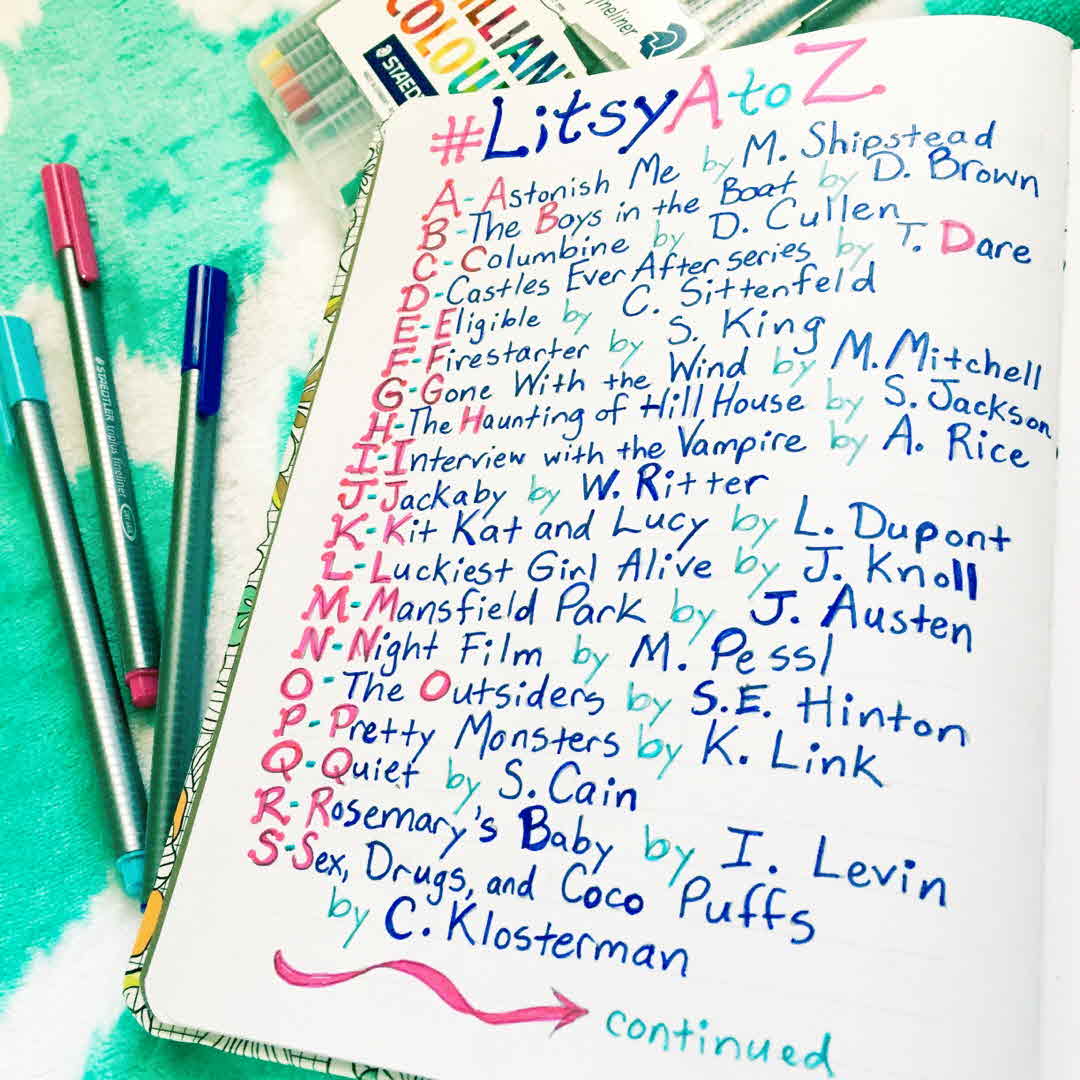 BRILLIANT
COLOUR
STAEDTLER
fineliner
#LitsyAtoZ
A-Astonish Me by M. Shipstead
B-The Boys in the Boat by D. Brown
C-Columbine by D. Cullen
D-Castles Ever After series by T. Dare
E-Eligible by C. Sittenfeld
F-Firestarter by S. King
G-Gone With the Wind by M. Mitchell
H-The Haunting of Hill House by S. Jackson
I-Interview with the Vampire by A. Rice
J-Jackaby by W. Ritter
K-Kit Kat and Lucy by L. Dupont
L-Luckiest Girl Alive by J. Knoll
M-Mansfield Park by J. Austen
N-Night Film by M. Pessl
O-The Outsiders by S.E. Hinton
P-Pretty Monsters by K. Link
Q-Quiet by S. Cain
R-Rosemary's Baby by I. Levin
S-Sex, Drugs, and Coco Puffs
by C. Klosterman
continued
STAEDTLER triplus fineliner